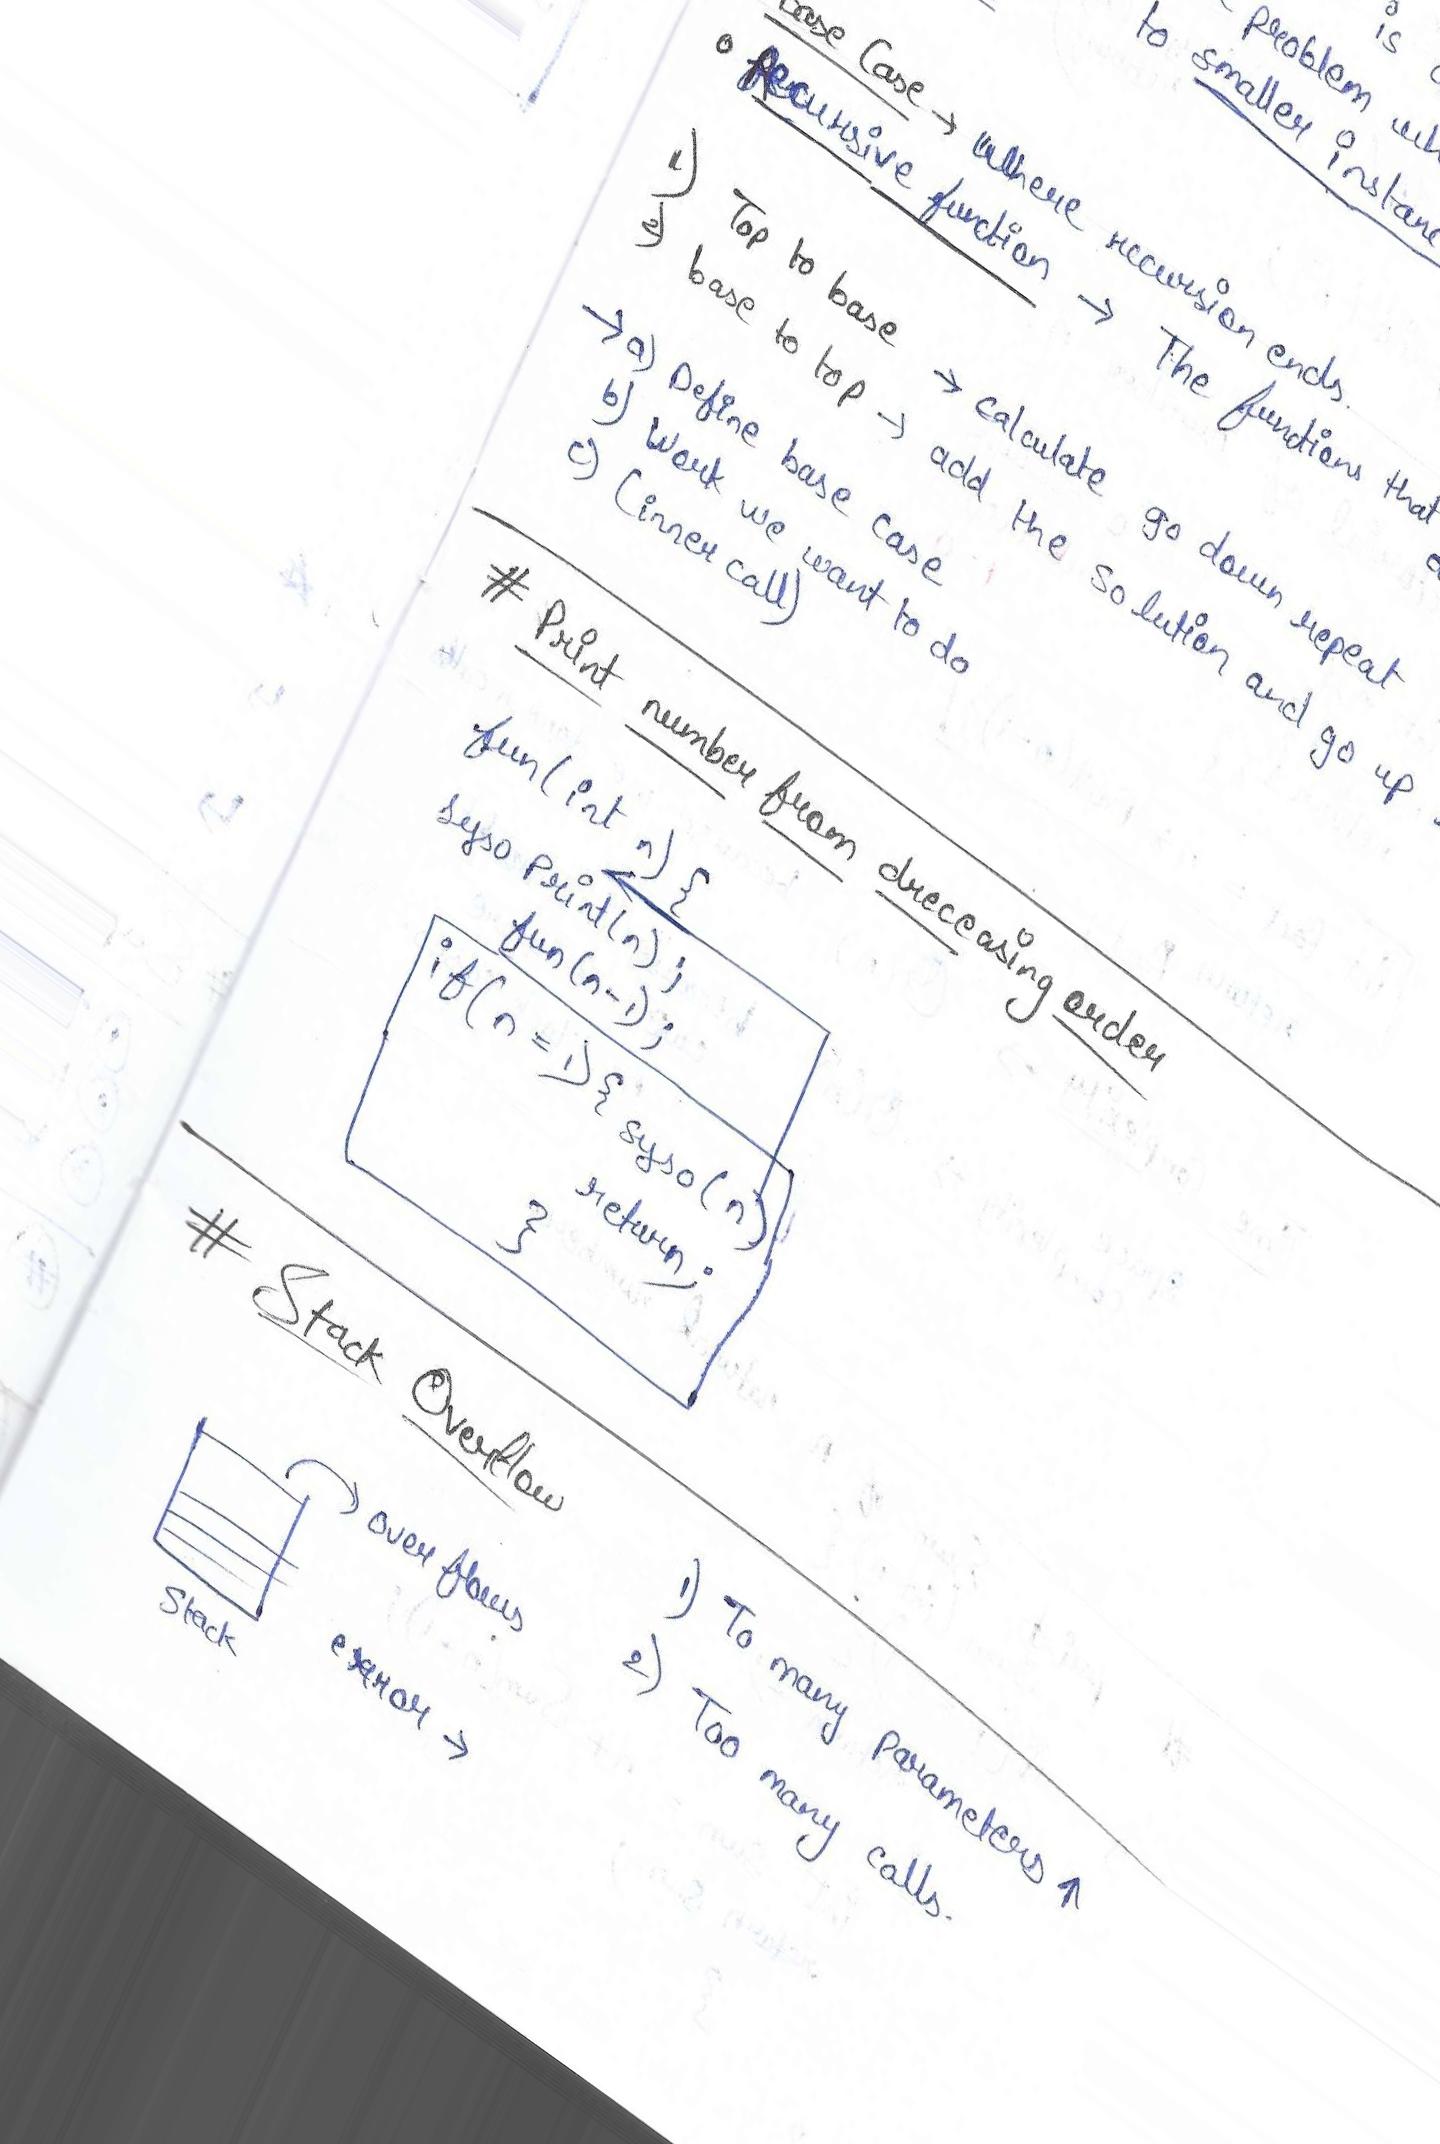 is
problem
to smaller
Base Case → Where recursion ends.
• Recursive function → The functions that
1) Top to base → calculate go down repeat
2) base to top → add the solution and go up
→ a) Define base case
b) Work we want to do
c) (inner call)
# Print number from dreccasing order
fun(int n) {
syso print(n);
fun(n-1);
if(n = 1) { syso(n)
return;
}
# Stack Overflow
overflows
Stack
error →
1) To many parameters ↑
2) Too many calls.